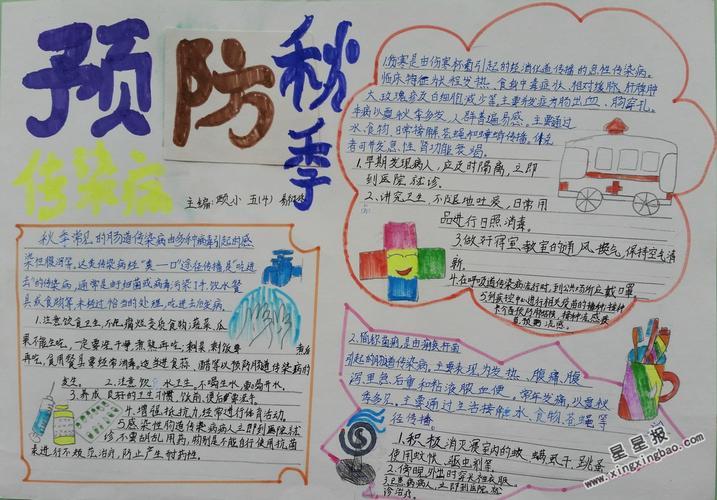 预防秋季
传染病
主编: 顾小 五(4)
秋季常见的肠道传染病由多种病毒引起的感
染性腹泻等,这类传染病经"粪一口"途径传播是"吃进
去"的传染病,通常是由于细菌或病毒污染了手、饮水餐
具或食物等,未经过恰当的处理,吃进去后发病。
1.注意饮食卫生不吃腐烂变质食物,蔬菜、瓜
果不能生吃,一定要洗干净,煮熟再吃,剩菜剩饭要
煮后
再吃,食用餐具要经常消毒。适当进食蒜、醋等以预防肠道传染病的
发生。 2.注意饮水卫生,不喝生水,要喝开水,
3.养成良好的卫生习惯,饭前、便后要洗手。
4.增强抵抗力,经常进行体育活动。
5.感染性肠道传染病病人立即到医院就
诊不要胡乱用药,特别是不能自行使用抗菌
来进行不规范治疗,防止产生耐药性。
1.伤寒是由伤寒杆菌引起的经消化道传播的急性传染病。
临床特征为长程发热、食谷中毒症状、相对缓脉、肝脾肿
大、玫瑰疹及白细胞减少等。主要并发症为肠出血、肠穿孔。
本病以夏秋季多发,人群普遍易感。主要通过
水、食物、日常接触、苍蝇和蟑螂传播。体
者可并发急性肾功能衰竭。
1.早期发现病人,应及时隔离,立即
到医院就诊。
2.讲究卫生,不随地吐痰,日常用
品进行日照消毒。
3.做好居室、教室的通风、换气,保持空气清
新。
4.在呼吸道传染病流行时,到公共场所应戴口罩。
5.到疾控中心进行相关疫苗的接种;接种
2.简称菌痢,是由痢疾杆菌
引起的肠道传染病。主要表现为发热、腹痛、腹
泻、里急后重和粘液脓血便。常年发病,以夏秋
季多见。主要通过生活接触、水、食物、苍蝇等
途径传播。
1.积极消灭居室内的蚊、蝇、虱子、跳蚤
使用蚊帐、驱虫剂等。
2.傍晚外出时穿长袖衣服。
3.患病病人,立即到医院就
诊治疗。
星星报
www.xingxingbao.com